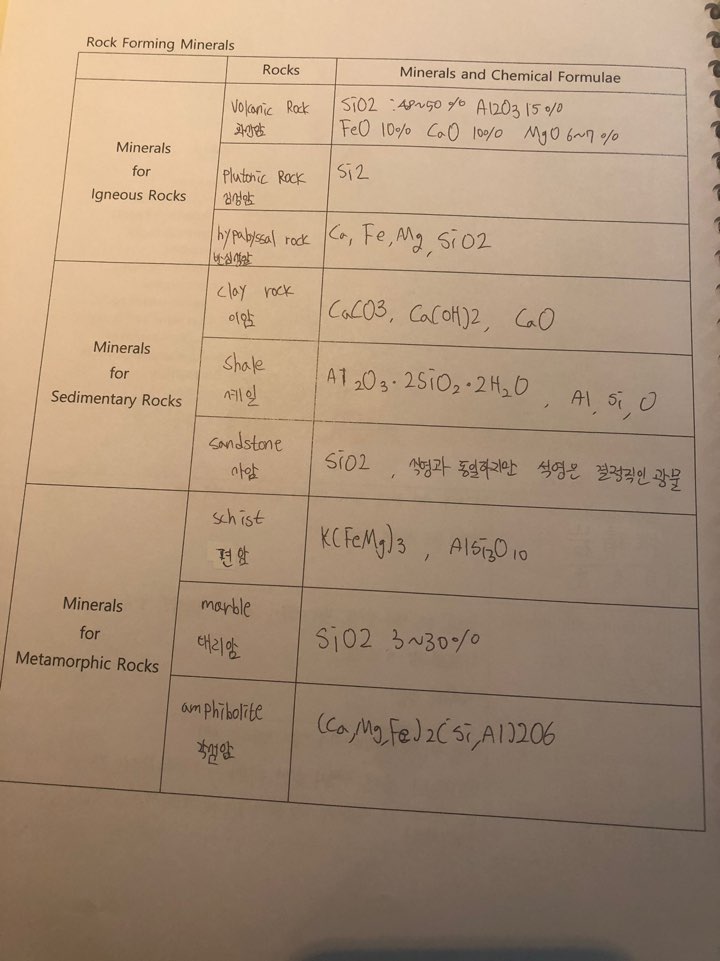 Rock Forming Minerals
Rocks
Minerals and Chemical Formulae
Minerals
for
Igneous Rocks
Volcanic Rock
화산암
SiO2 : 48~50 % Al2O3 15%
FeO 10% CaO 10% MgO 6~7 %
Plutonic Rock
심성암
Si2
hypabyssal rock
반심성암
Ca, Fe, Mg, SiO2
Minerals
for
Sedimentary Rocks
clay rock
이암
CaCO3, Ca(OH)2, CaO
Shale
셰일
Al2O3·2SiO2·2H2O , Al, Si, O
sandstone
사암
SiO2 , 석영과 동일하지만 석영은 결정적인 광물
Minerals
for
Metamorphic Rocks
schist
편암
K(FeMg)3 , AlSi3O10
marble
대리암
SiO2 3~30%
amphibolite
각섬암
(Ca,Mg,Fe)2(Si,Al)2O6